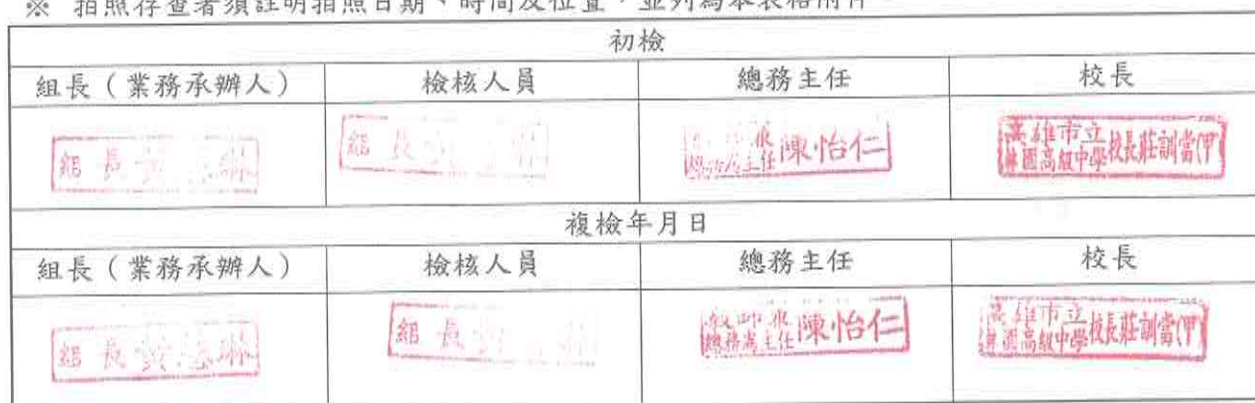 ※ 拍照存查者須註明拍照日期、時間及位置，並列為本表格附件。
初檢
組長（業務承辦人） 檢核人員 總務主任 校長
組長黃 琳 組長 總務主任 陳怡仁 高雄市立 高級中學 校長莊訓當(甲)
複檢年月日
組長（業務承辦人） 檢核人員 總務主任 校長
組長黃 琳 組長 總務 主任 陳怡仁 高雄市立 高級中學 校長莊訓當(甲)